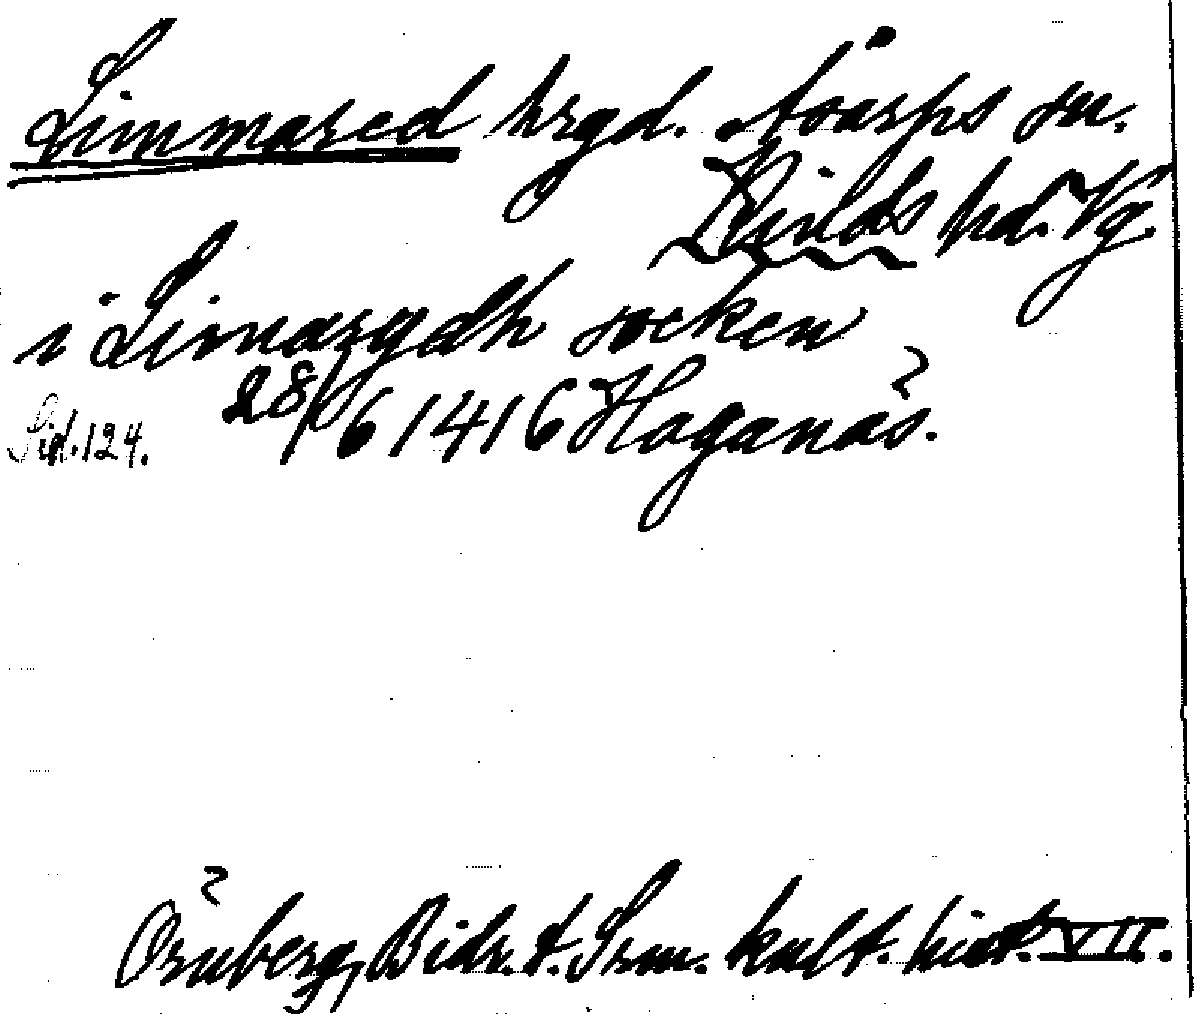 Limmared hrgd. Åsarps sn.
Kinds hd. Vg.
i Limarydh socken
Sid. 124. 28/6 1416 Haganäs.
Örnberg, Bidr. t. Srm. kult. hist. VII.